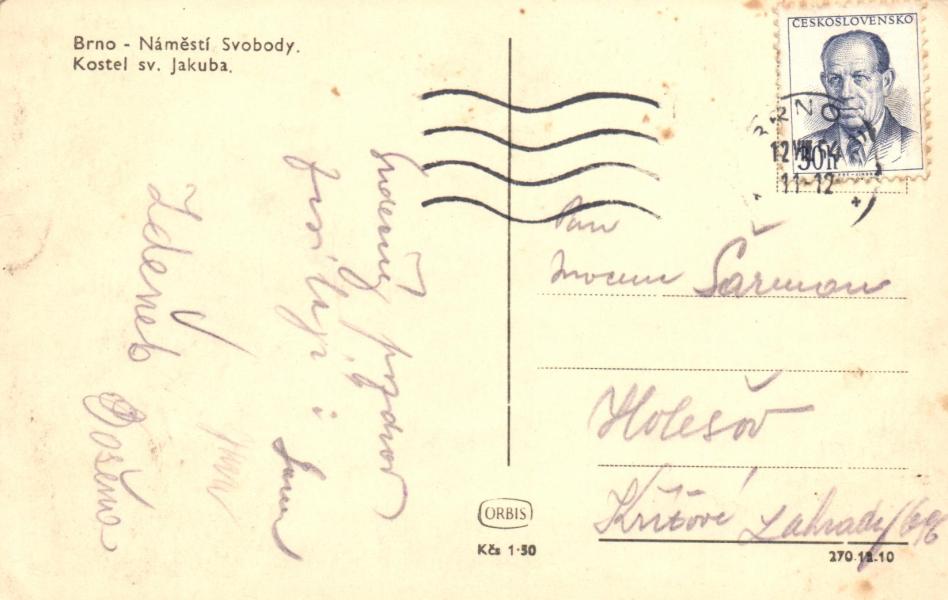 Brno - Náměstí Svobody.
Kostel sv. Jakuba.
ČESKOSLOVENSKO
30 h
BRNO
12 VIII 54
11-12
Srdečný pozdrav
Zdeněk
Božena
Pan
Šárman
Holešov
Křížové Zahrady
ORBIS
Kčs 1·50
270.12.10